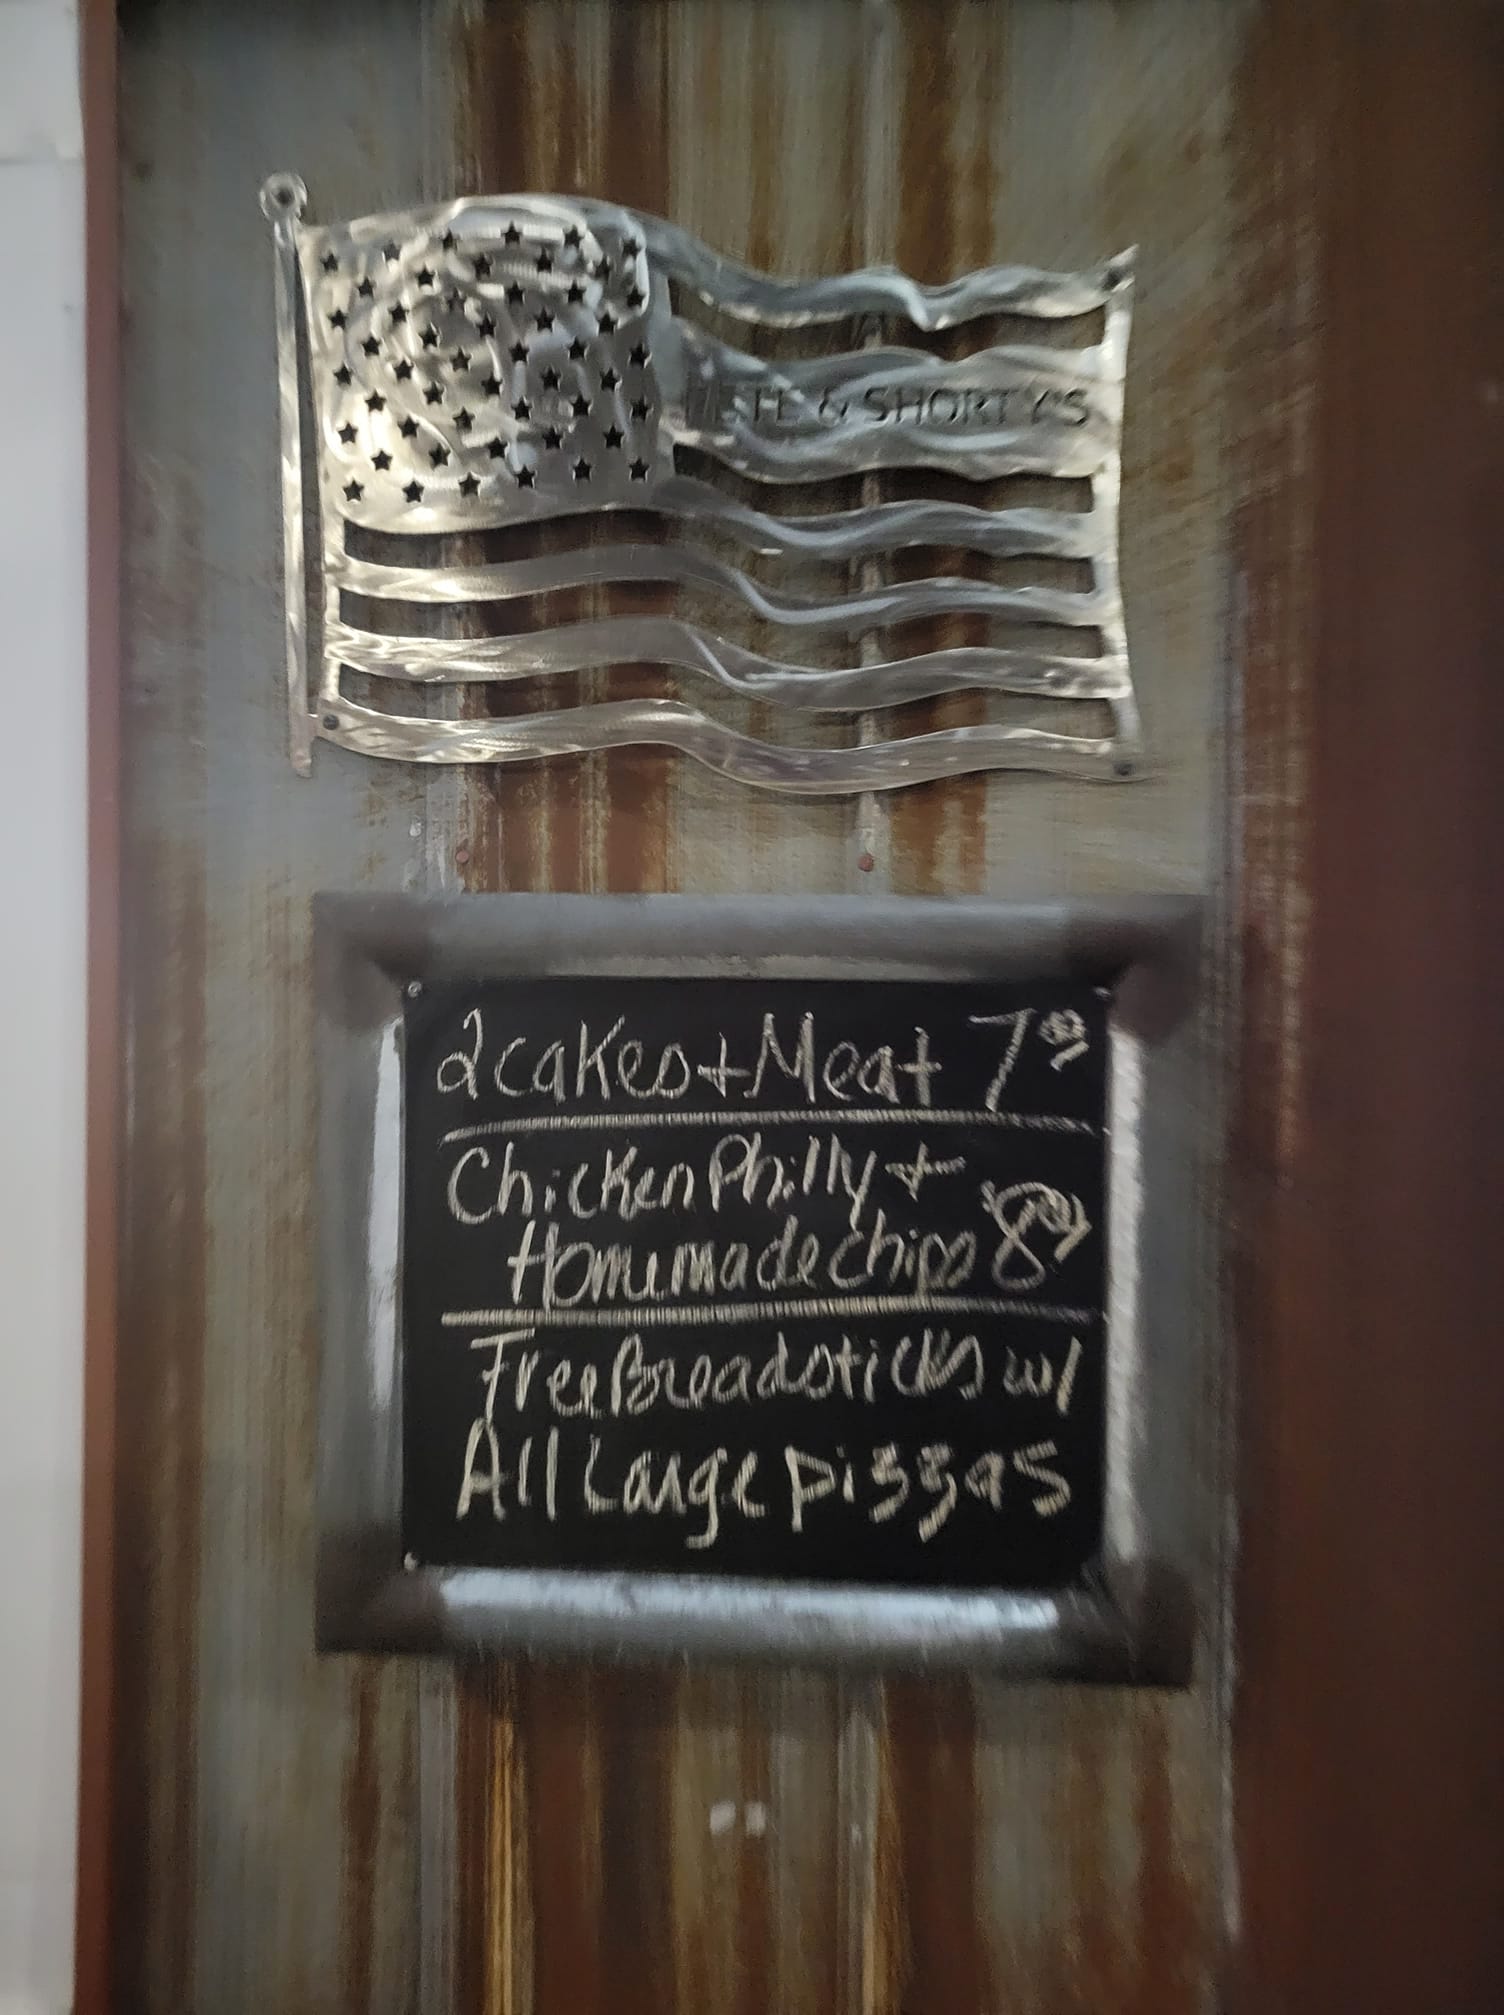 PETE & SHORTY'S
2 cakes + Meat 7
Chicken Philly +
Homemade chips 8
Free Breadsticks w/
All Large pizzas